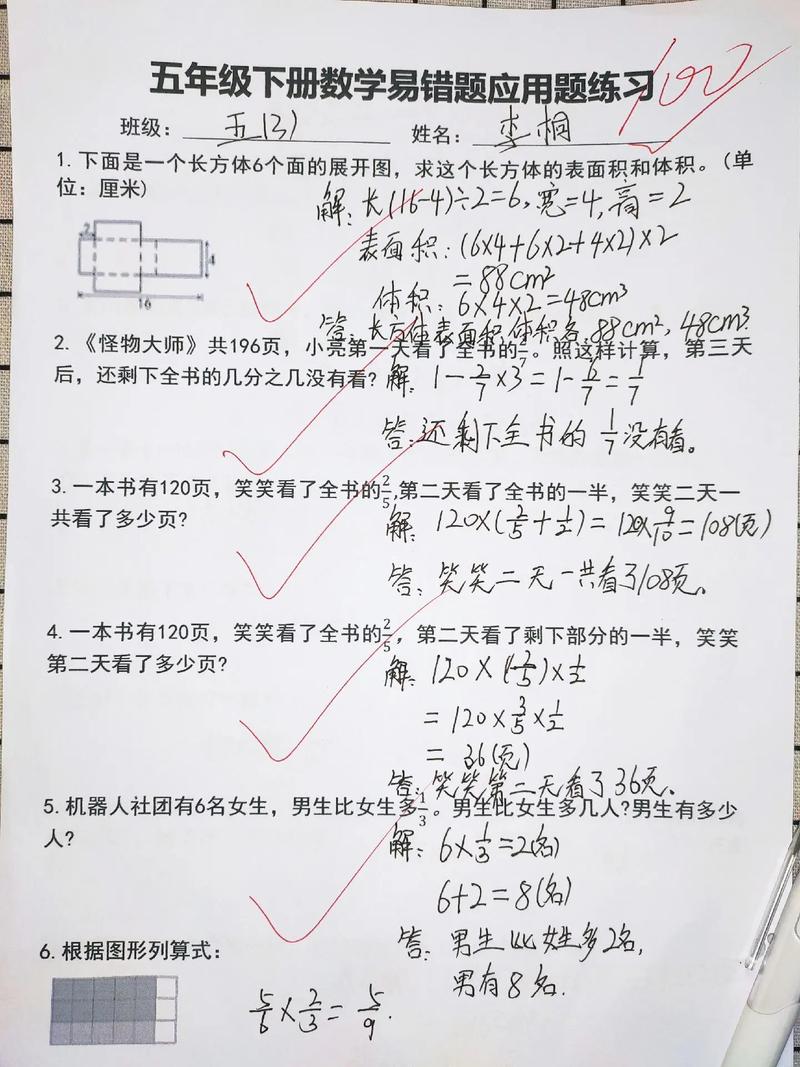 五年级下册数学易错题应用题练习
100
班级: 五(3) 姓名: 李桐
1.下面是一个长方体6个面的展开图，求这个长方体的表面积和体积。(单
位: 厘米)
解: 长(16-4)÷2=6, 宽=4, 高=2
表面积: (6×4+6×2+4×2)×2
=88cm²
体积: 6×4×2=48cm³
答: 长方体表面积,体积各88cm², 48cm³.
2
4
16
2.《怪物大师》共196页，小亮第一天看了全书的2/7。照这样计算，第三天
后，还剩下全书的几分之几没有看?
解: 1-2/7×3=1-6/7=1/7
答: 还剩下全书的1/7没有看。
3.一本书有120页，笑笑看了全书的2/5,第二天看了全书的一半，笑笑二天一
共看了多少页?
解: 120×(2/5+1/2)=120×9/10=108(页)
答: 笑笑二天一共看了108页。
4.一本书有120页，笑笑看了全书的2/5，第二天看了剩下部分的一半，笑笑
第二天看了多少页?
解: 120×(1-2/5)×1/2
=120×3/5×1/2
=36(页)
答: 笑笑第二天看了36页。
5.机器人社团有6名女生，男生比女生多1/3。男生比女生多几人?男生有多少
人?
解: 6×1/3=2(名)
6+2=8(名)
答: 男生比女生多2名,
男有8名.
6.根据图形列算式:
5/6×2/3=5/9.